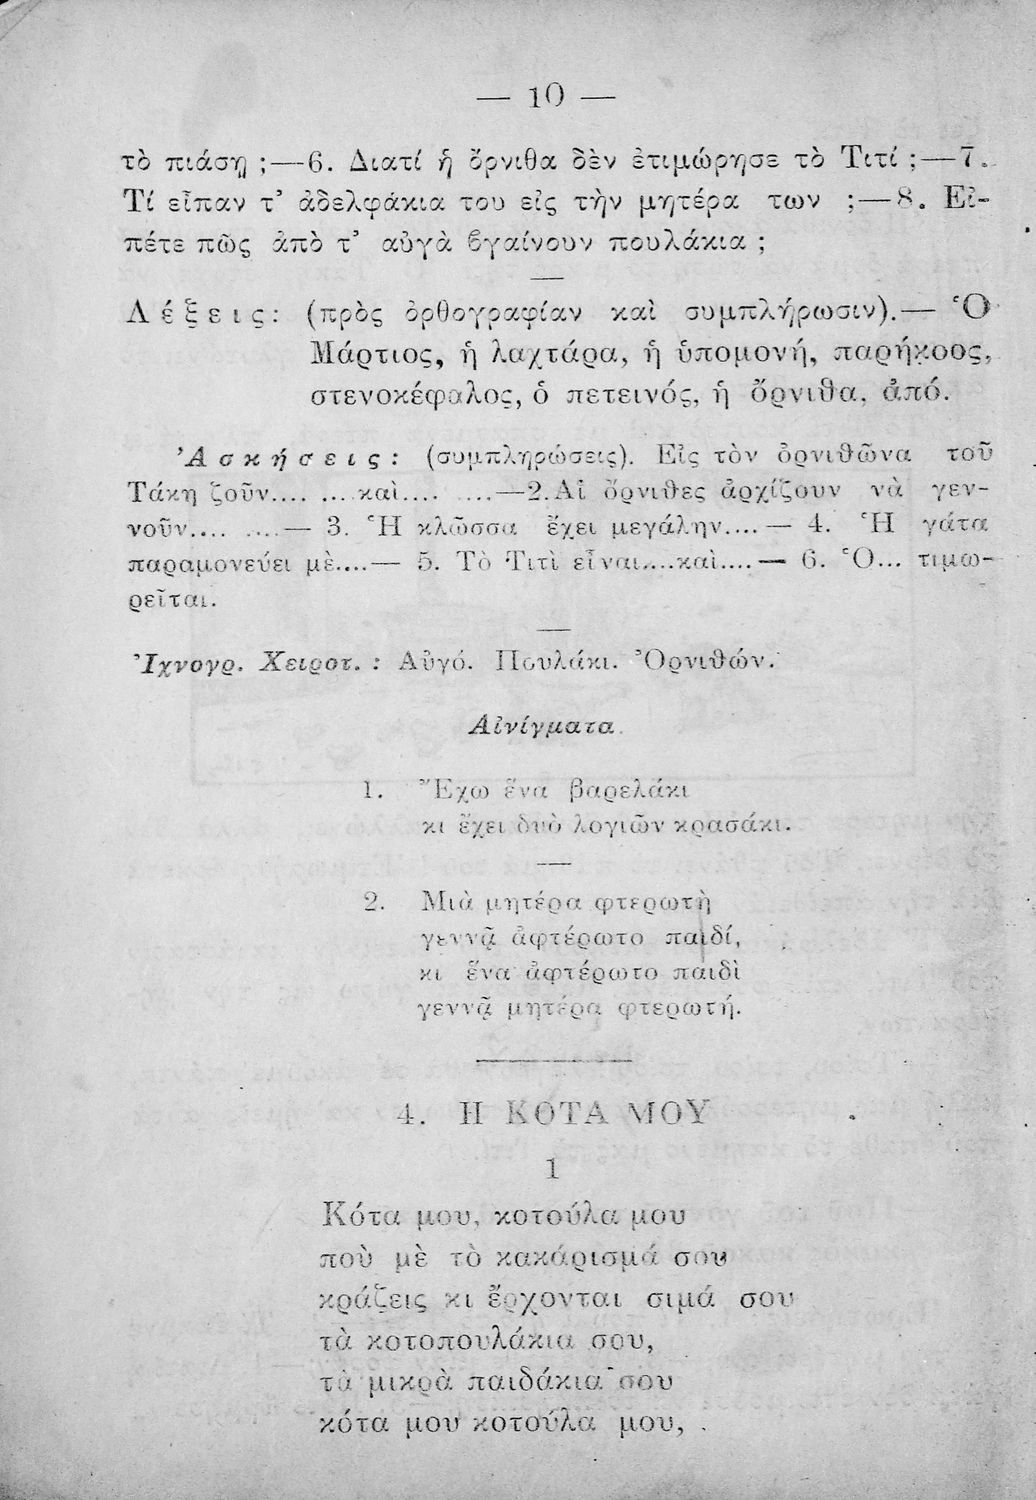 — 10 —
τὸ πιάσῃ ;—6. Διατί ἡ ὄρνιθα δὲν ἐτιμώρησε τὸ Τιτί ;—7.
Τί εἶπαν τ’ ἀδελφάκια του εἰς τὴν μητέρα των ;—8. Εἰ-
πέτε πῶς ἀπὸ τ’ αὐγὰ βγαίνουν πουλάκια ;
Λέξεις: (πρὸς ὀρθογραφίαν καὶ συμπλήρωσιν).— Ὁ
Μάρτιος, ἡ λαχτάρα, ἡ ὑπομονή, παρήκοος,
στενοκέφαλος, ὁ πετεινός, ἡ ὄρνιθα, ἀπό.
Ἀσκήσεις: (συμπληρώσεις). Εἰς τὸν ὀρνιθῶνα τοῦ
Τάκη ζοῦν.... ....καὶ.... ....—2. Αἱ ὄρνιθες ἀρχίζουν νὰ γεν-
νοῦν.... ....— 3. Ἡ κλῶσσα ἔχει μεγάλην....— 4. Ἡ γάτα
παραμονεύει μὲ....— 5. Τὸ Τιτὶ εἶναι....καὶ....— 6. Ὁ... τιμω-
ρεῖται.
Ἰχνογρ. Χειροτ. : Αὐγό. Πουλάκι. Ὀρνιθών.
Αἰνίγματα.
1. Ἔχω ἕνα βαρελάκι
κι ἔχει δυὸ λογιῶν κρασάκι.
2. Μιὰ μητέρα φτερωτὴ
γεννᾷ ἀφτέρωτο παιδί,
κι ἕνα ἀφτέρωτο παιδὶ
γεννᾷ μητέρα φτερωτή.
4. Η ΚΟΤΑ ΜΟΥ
1
Κότα μου, κοτούλα μου
ποὺ μὲ τὸ κακάρισμά σου
κράζεις κι ἔρχονται σιμά σου
τὰ κοτοπουλάκια σου,
τὰ μικρὰ παιδάκια σου
κότα μου κοτούλα μου,